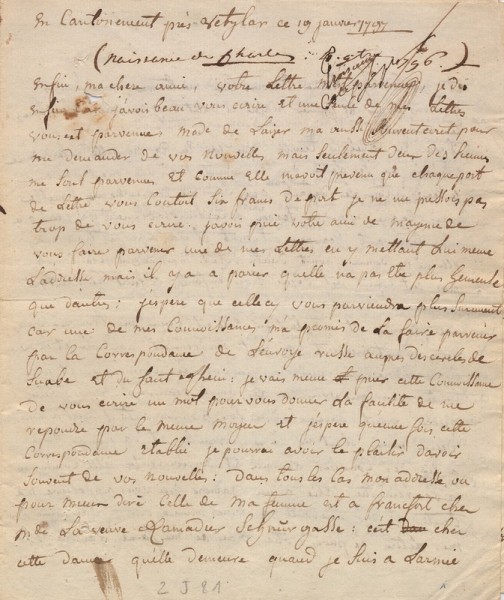 En Cantonement près Wetzlar ce 19 janvier 1797
(naissance de Charles : 1796.)
Enfin, ma chere amie, votre Lettre m'est parvenue, je dis
enfin car j'avois beau vous ecrire et une seule de mes Lettres
vous est parvenue mde de ma aussi souvent ecrit pour
me demander de vos nouvelles mais seulement deux des siennes
me sont parvenues et comme elle m'avoit prevenu que chaque port
de Lettre vous coutoit six francs de port je ne me pressois pas
trop de vous ecrire. j'avois prié votre ami de mayence de
vous faire parvenir une de mes Lettres en y mettant Lui meme
L'addresse, mais il y a a parier quelle n'a pas été plus heureuse
que d'autres : j'espere que celle ci vous parviendra plus surement
car une de mes Connoissances m'a promis de La faire parvenir
par la Correspondance de L'envoyé russe aupres des cercles de
Suabe et du haut rhein : je vais meme prier cette Connoissance
de vous ecrire un mot pour vous donner La facilité de me
repondre par le meme moyen et j'espere que une fois cette
Correspondance etablie je pourrai avoir le plaisir d'avoir
souvent de vos nouvelles : Dans tous les cas mon addresse ou
pour mieux dire Celle de ma femme est a francfort chez
mde La veuve Schnurgasse : c'est chez
cette dame qu'elle demeure quand je suis a L'armée
2 J 81